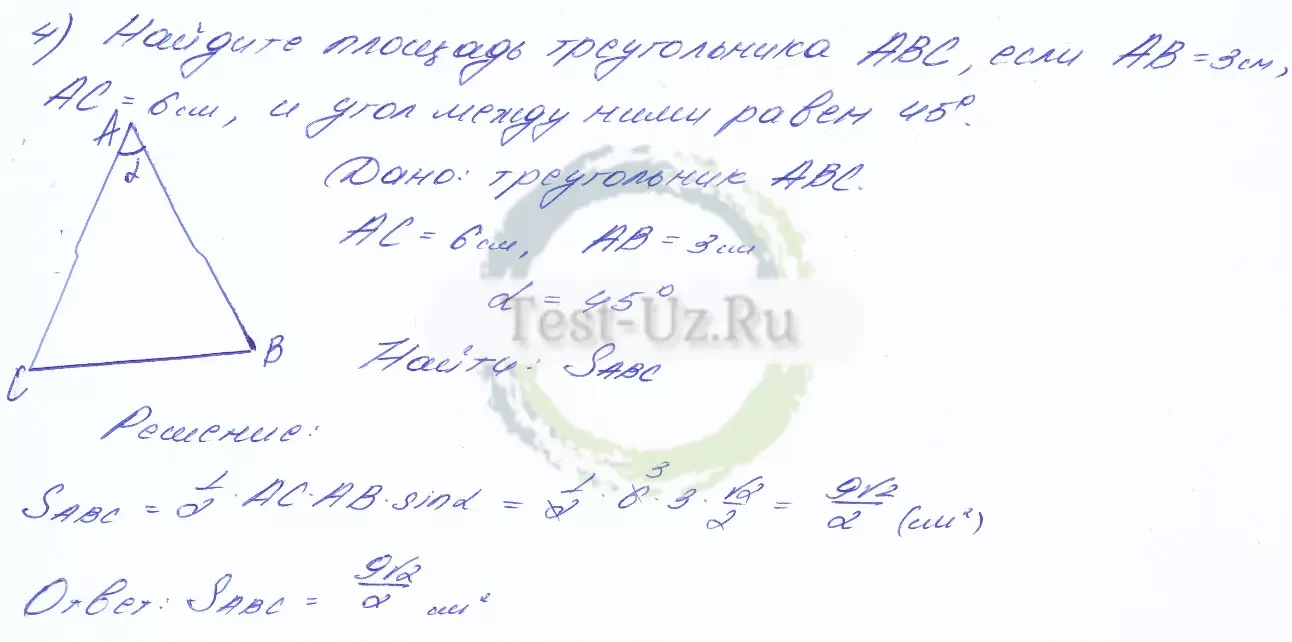 4) Найдите площадь треугольника ABC, если AB = 3 см,
AC = 6 см, и угол между ними равен 45°.
A
α
Дано: треугольник ABC.
AC = 6 см, AB = 3 см
α = 45°
Test-Uz.Ru
B
Найти: S_ABC
C
Решение:
S_ABC = 1/2 · AC · AB · sin α = 1/2 · 6 3 · 3 · √2/2 = 9√2/2 (см²)
Ответ: S_ABC = 9√2/2 см²